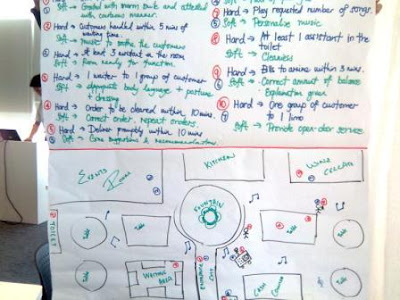 Soft → Greeted with warm smile and attended
with courteous manner.
② Hard → Customers handled within 5 mins of
waiting time
Soft → music to soothe the customers
③ Hard → At least 3 assistant in the room
Soft → Room ready for function
④ Hard → 1 waiter to 1 group of customer
Soft → appropriate body language + posture
+ dressing
Hard → Order to be cleared within 10 mins
Soft → Correct order, repeat orders.
Hard → Deliver promptly within 10 mins
Soft → Give suggestions & recommendations.
Hard → Play requested number of songs.
Soft → Personalise music
Hard → At least 1 assistant in the
toilet
Soft → Cleanliness
Hard → Bills to arrive within 3 mins.
Soft → Correct amount of balance
Explanation given
⑩ Hard → One group of customer
to 1 limo
Soft → Provide open-door services
Events
Room
Kitchen
Wine
Cellar
Fountain
Toilet
Table
Table
Table
Table
Table
Table
Waiting
Area
Entrance
Cashier
Counter